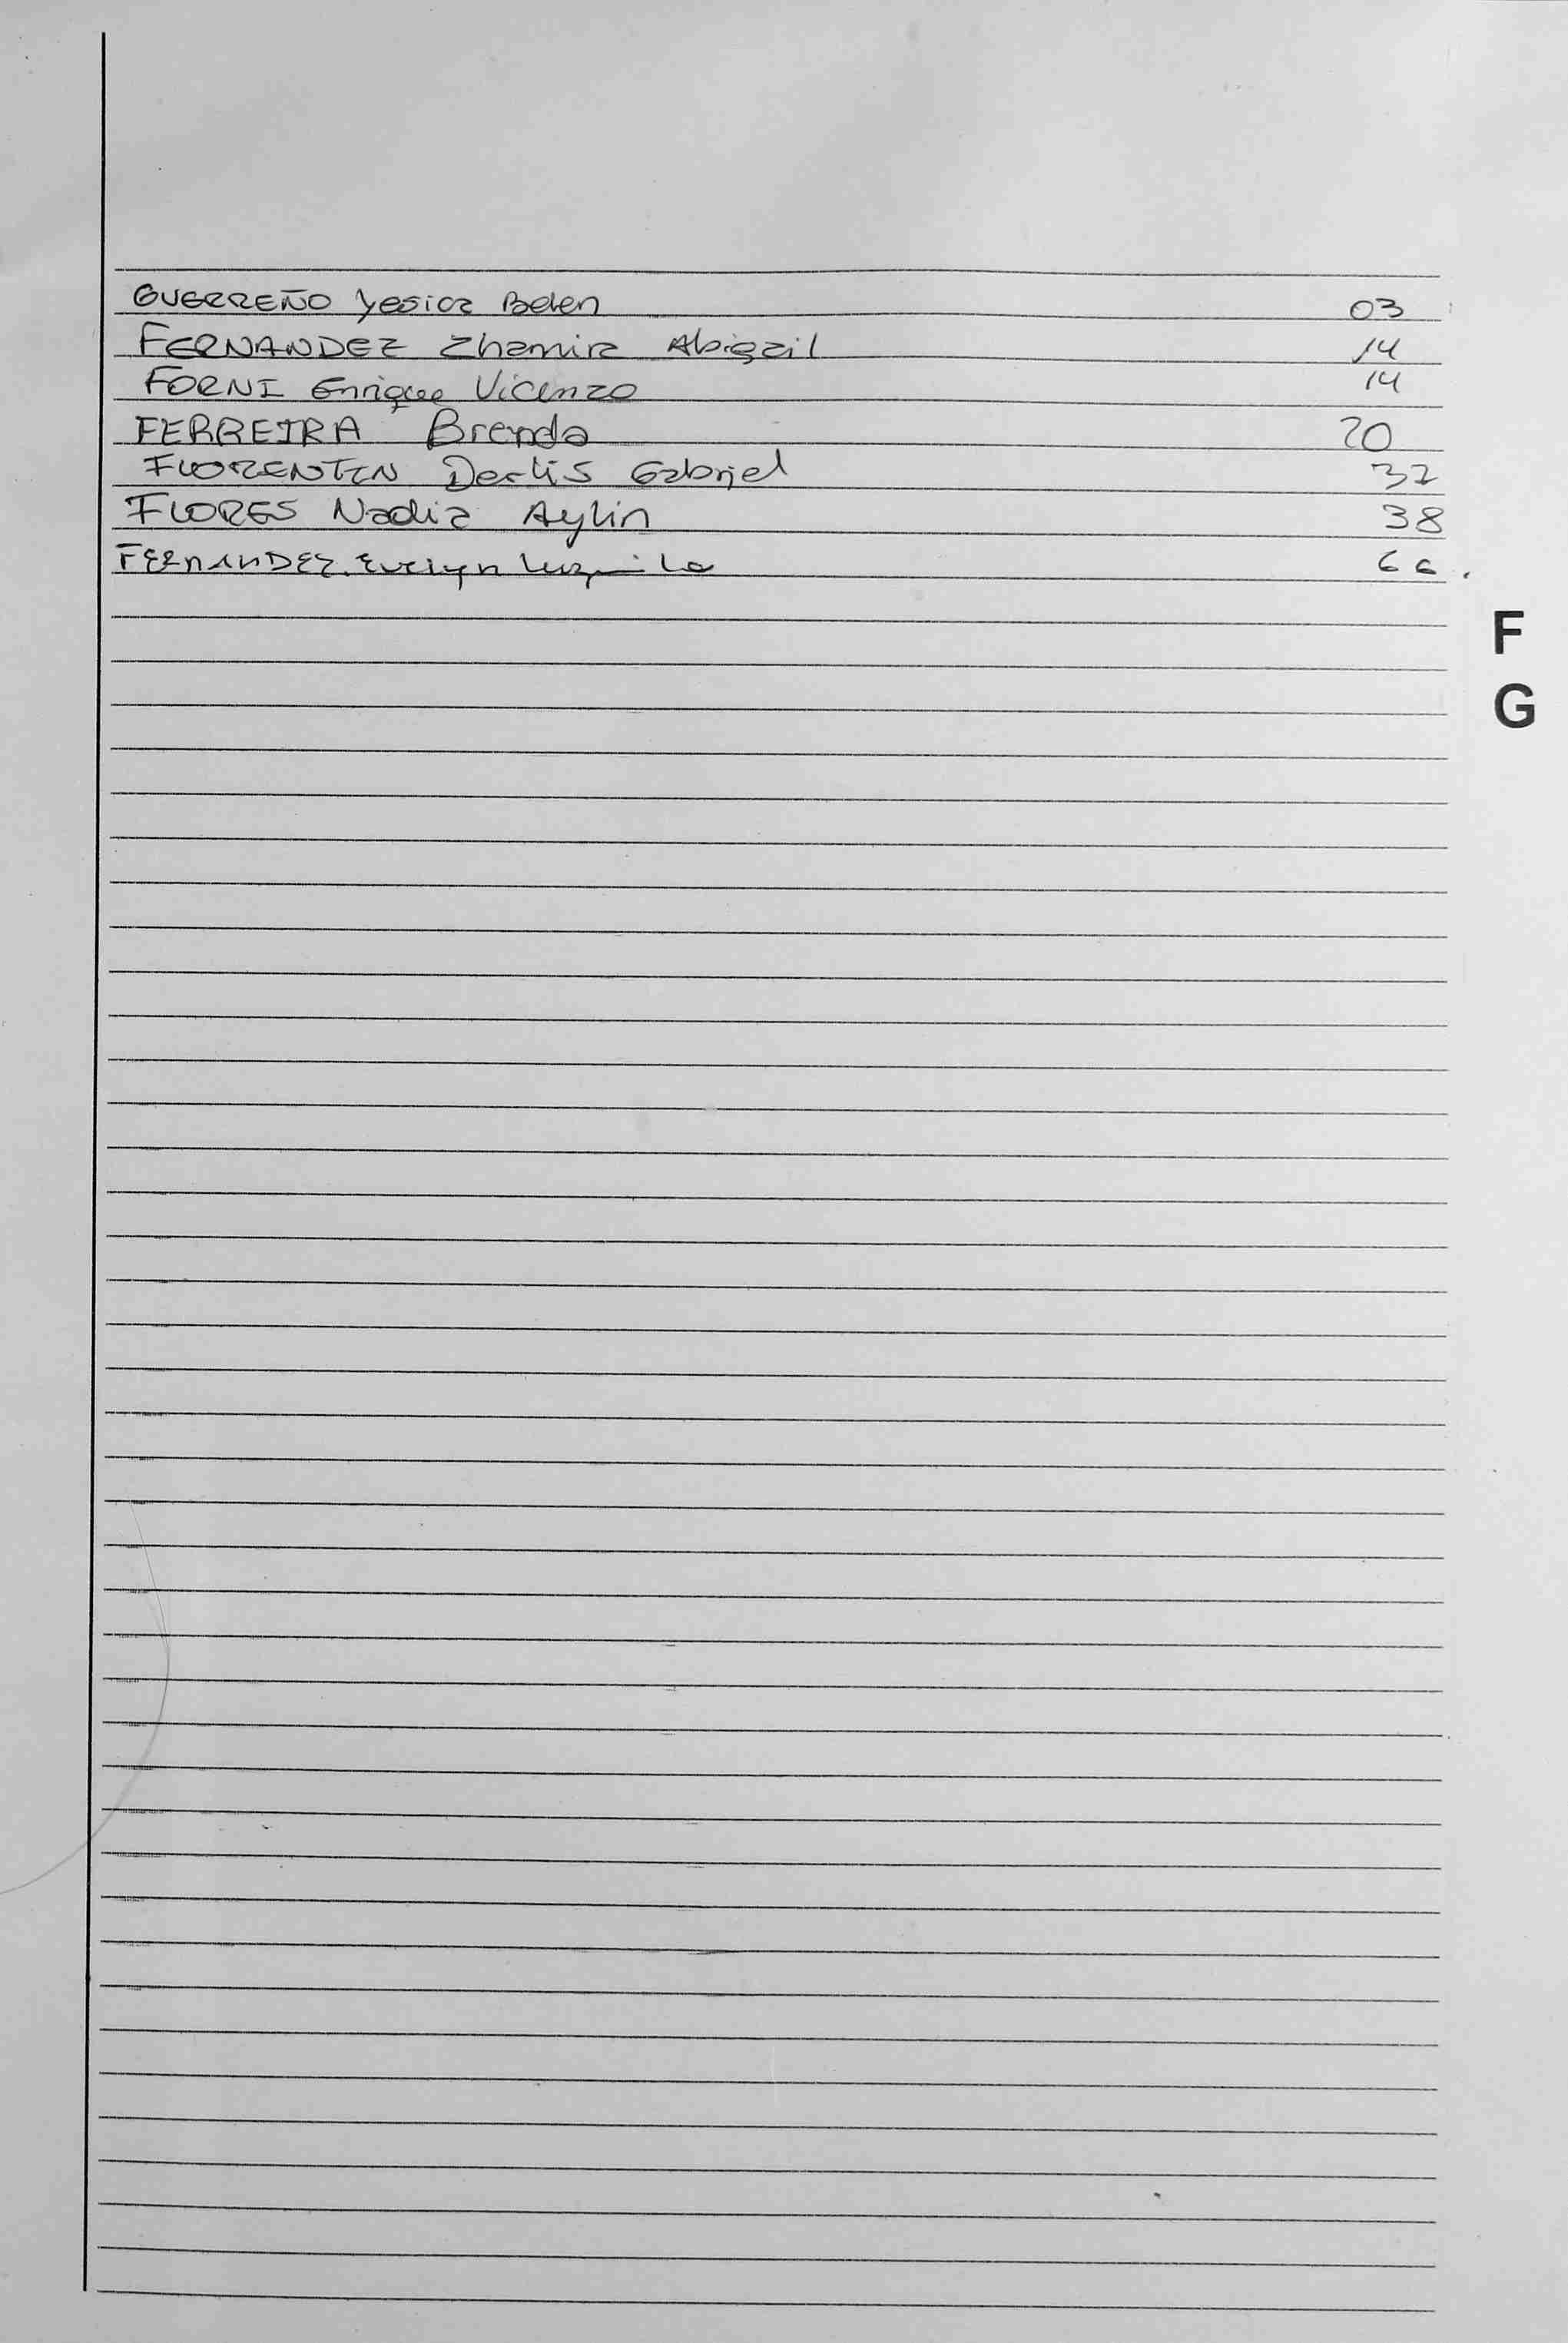 GUERREÑO Yesica Belen 03
FERNANDEZ Zhamira Abigail 14
FORNI Enrique Vicenzo 14
FERREIRA Brenda 20
FLORENTIN Derlis Gabriel 32
FLORES Nadia Aylin 38
FERNANDEZ Evelyn Luzmila 66.
F
G